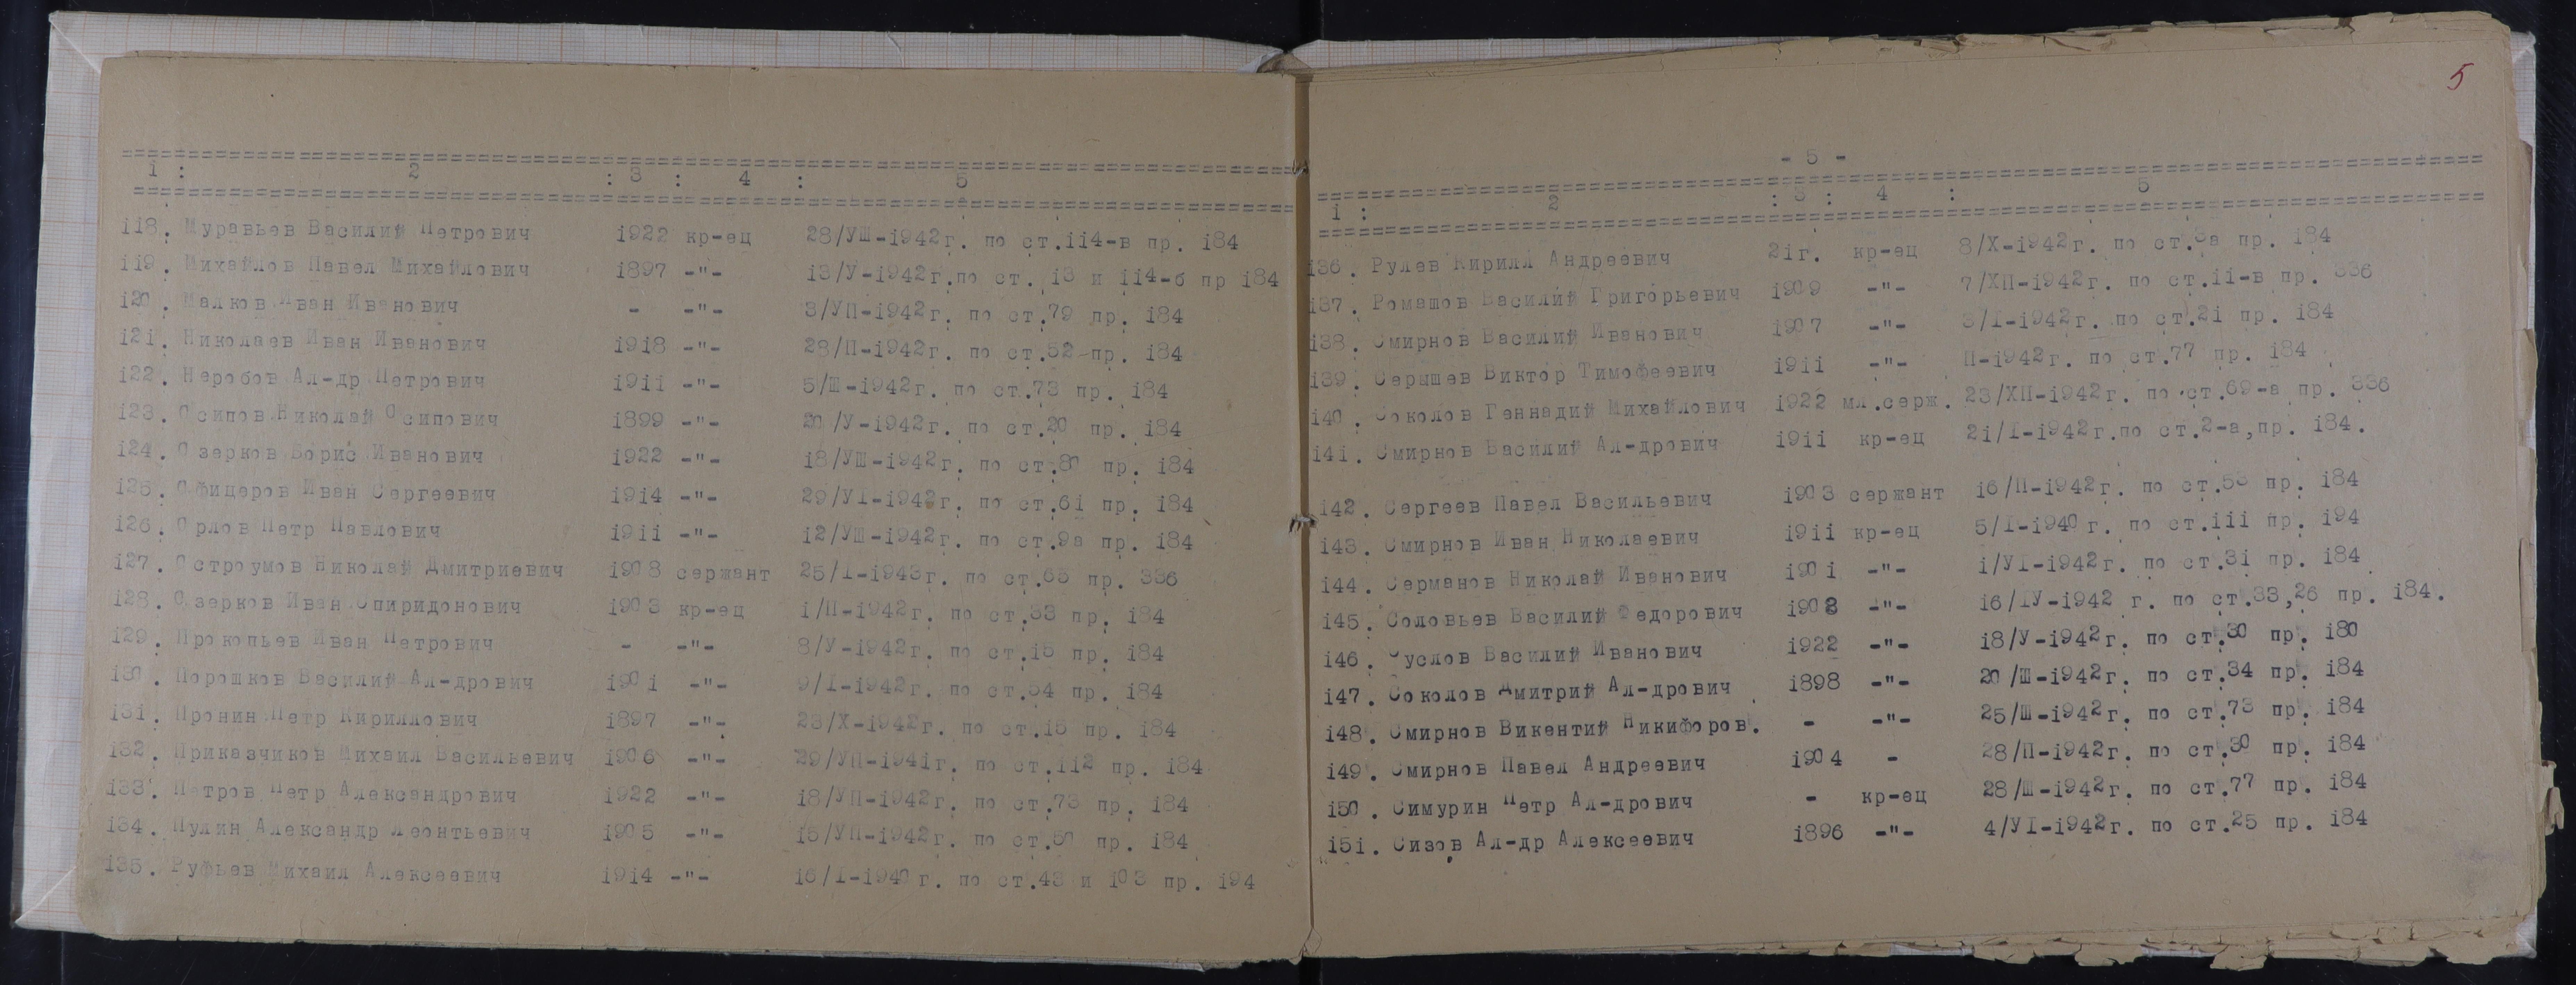 1 : 2 : 3 : 4 : 5
i18. Муравьев Василий Петрович i922 кр-ец 28/УШ-i942г. по ст.ii4-в пр. i84
i19. Михайлов Павел Михайлович i897 -"- i3/У-i942г.по ст. i3 и ii4-б пр i84
i20. Малков Иван Иванович - -"- 3/УП-i942г. по ст.79 пр. i84
i2i. Николаев Иван Иванович i9i8 -"- 28/П-i942г. по ст.52 пр. i84
i22. Неробов Ал-др Петрович i9ii -"- 5/Ш-i942г. по ст.73 пр. i84
i23. Осипов Николай Осипович i899 -"- 20/У-i942г. по ст.20 пр. i84
i24. Озерков Борис Иванович i922 -"- i8/УШ-i942г. по ст.80 пр. i84
i25. Офицеров Иван Сергеевич i9i4 -"- 29/УI-i942г. по ст.6i пр. i84
i26. Орлов Петр Павлович i9ii -"- i2/УШ-i942г. по ст.9а пр. i84
i27. Остроумов Николай Дмитриевич i908 сержант 25/I-i943г. по ст.65 пр. 336
i28. Озерков Иван Спиридонович i903 кр-ец i/П-i942г. по ст.33 пр. i84
i29. Прокопьев Иван Петрович - -"- 8/У-i942г. по ст.i5 пр. i84
i30. Порошков Василий Ал-дрович i90i -"- 9/I-i942г. по ст.54 пр. i84
i3i. Пронин Петр Кириллович i897 -"- 23/X-i942г. по ст.i5 пр. i84
i32. Приказчиков Михаил Васильевич i906 -"- 29/УП-i94iг. по ст.ii2 пр. i84
i33. Петров Петр Александрович i922 -"- i8/УП-i942г. по ст.73 пр. i84
i34. Пулин Александр Леонтьевич i905 -"- i5/УП-i942г. по ст.50 пр. i84
i35. Руфьев Михаил Алексеевич i9i4 -"- i6/I-i940г. по ст.43 и i03 пр. i94
5
- 5 -
1 : 2 : 3 : 4 : 5
i36. Рулев Кирилл Андреевич 2iг. кр-ец 8/X-i942г. по ст.3а пр. i84
i37. Ромашов Василий Григорьевич i909 -"- 7/XП-i942г. по ст.ii-в пр. 336
i38. Смирнов Василий Иванович i907 -"- 3/I-i942г. по ст.2i пр. i84
i39. Серышев Виктор Тимофеевич i9ii -"- П-i942г. по ст.77 пр. i84
i40. Соколов Геннадий Михайлович i922 мл.серж. 23/XП-i942г. по ст.69-а пр. 336
i4i. Смирнов Василий Ал-дрович i9ii кр-ец 2i/I-i942г.по ст.2-а,пр. i84.
i42. Сергеев Павел Васильевич i903 сержант i6/П-i942г. по ст.53 пр. i84
i43. Смирнов Иван Николаевич i9ii кр-ец 5/I-i940г. по ст.iii пр. i94
i44. Серманов Николай Иванович i90i -"- i/УI-i942г. по ст.3i пр. i84
i45. Соловьев Василий Федорович i908 -"- i6/IУ-i942 г. по ст.33,26 пр. i84.
i46. Суслов Василий Иванович i922 -"- i8/У-i942г. по ст.30 пр. i80
i47. Соколов Дмитрий Ал-дрович i898 -"- 20/Ш-i942г. по ст.34 пр. i84
i48. Смирнов Викентий Никифоров. - -"- 25/Ш-i942г. по ст.73 пр. i84
i49. Смирнов Павел Андреевич i904 - 28/П-i942г. по ст.30 пр. i84
i50. Симурин Петр Ал-дрович - кр-ец 28/Ш-i942г. по ст.77 пр. i84
i5i. Сизов Ал-др Алексеевич i896 -"- 4/УI-i942г. по ст.25 пр. i84